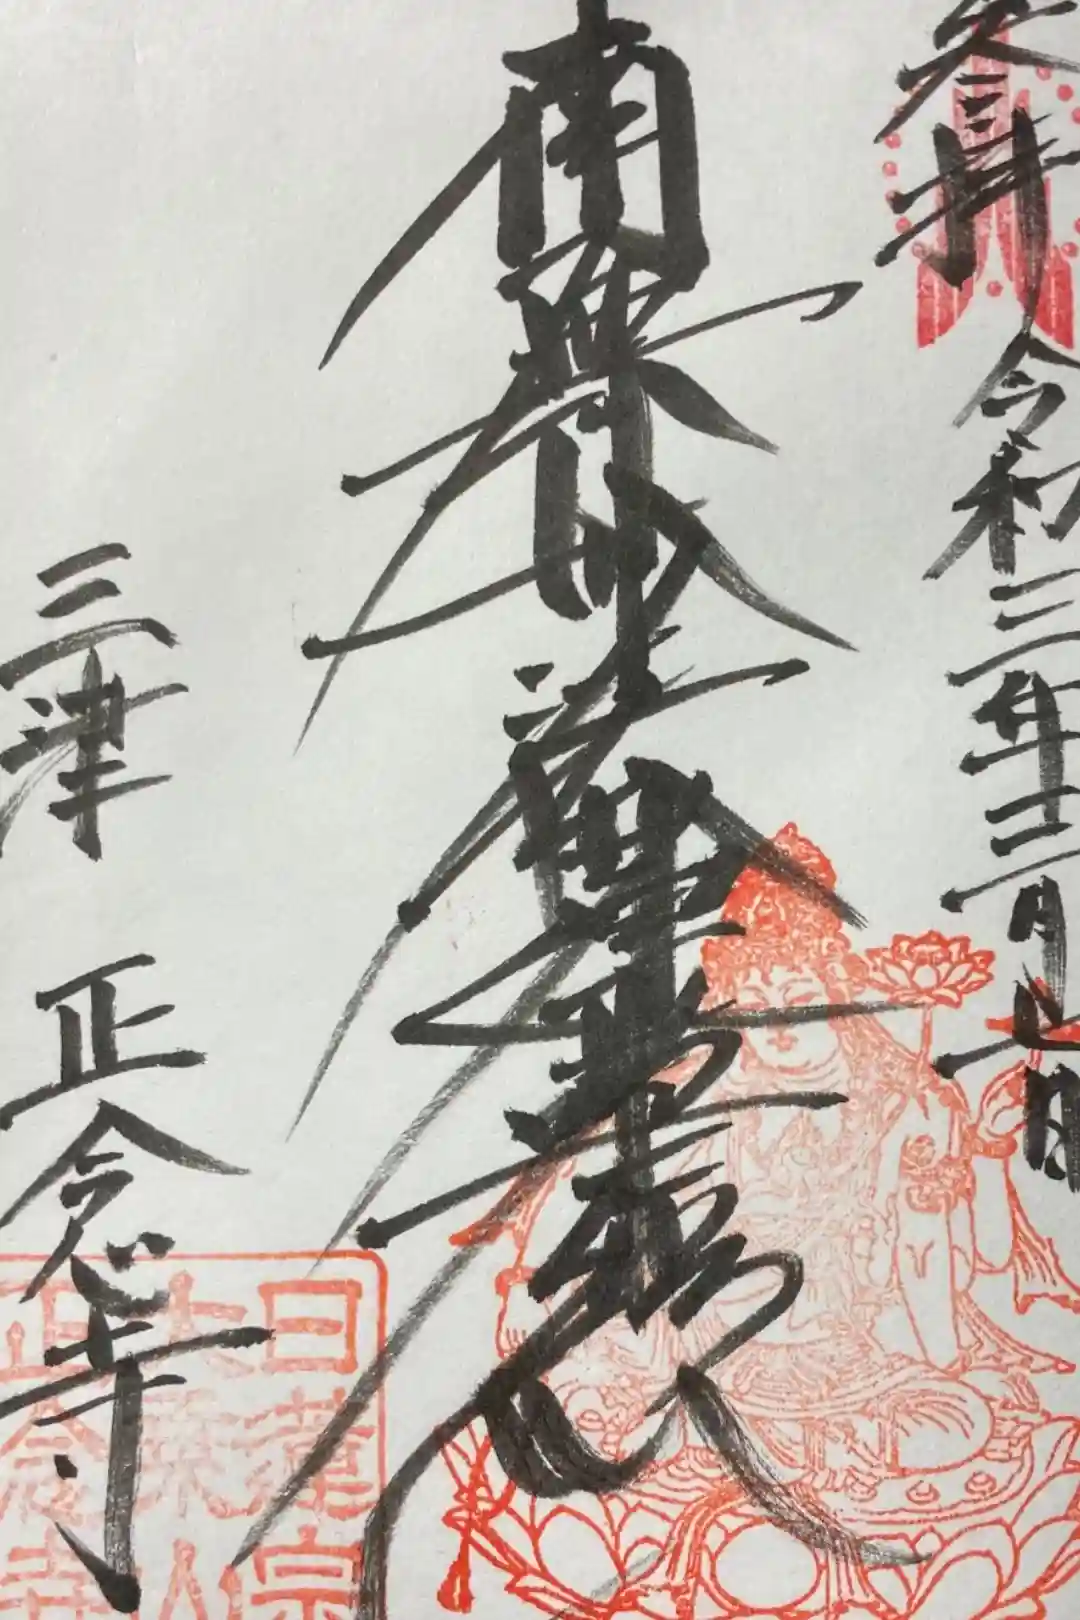 令和三年十二月
南無妙法蓮華経
三津 正念寺
日蓮宗
大乗山
正念寺